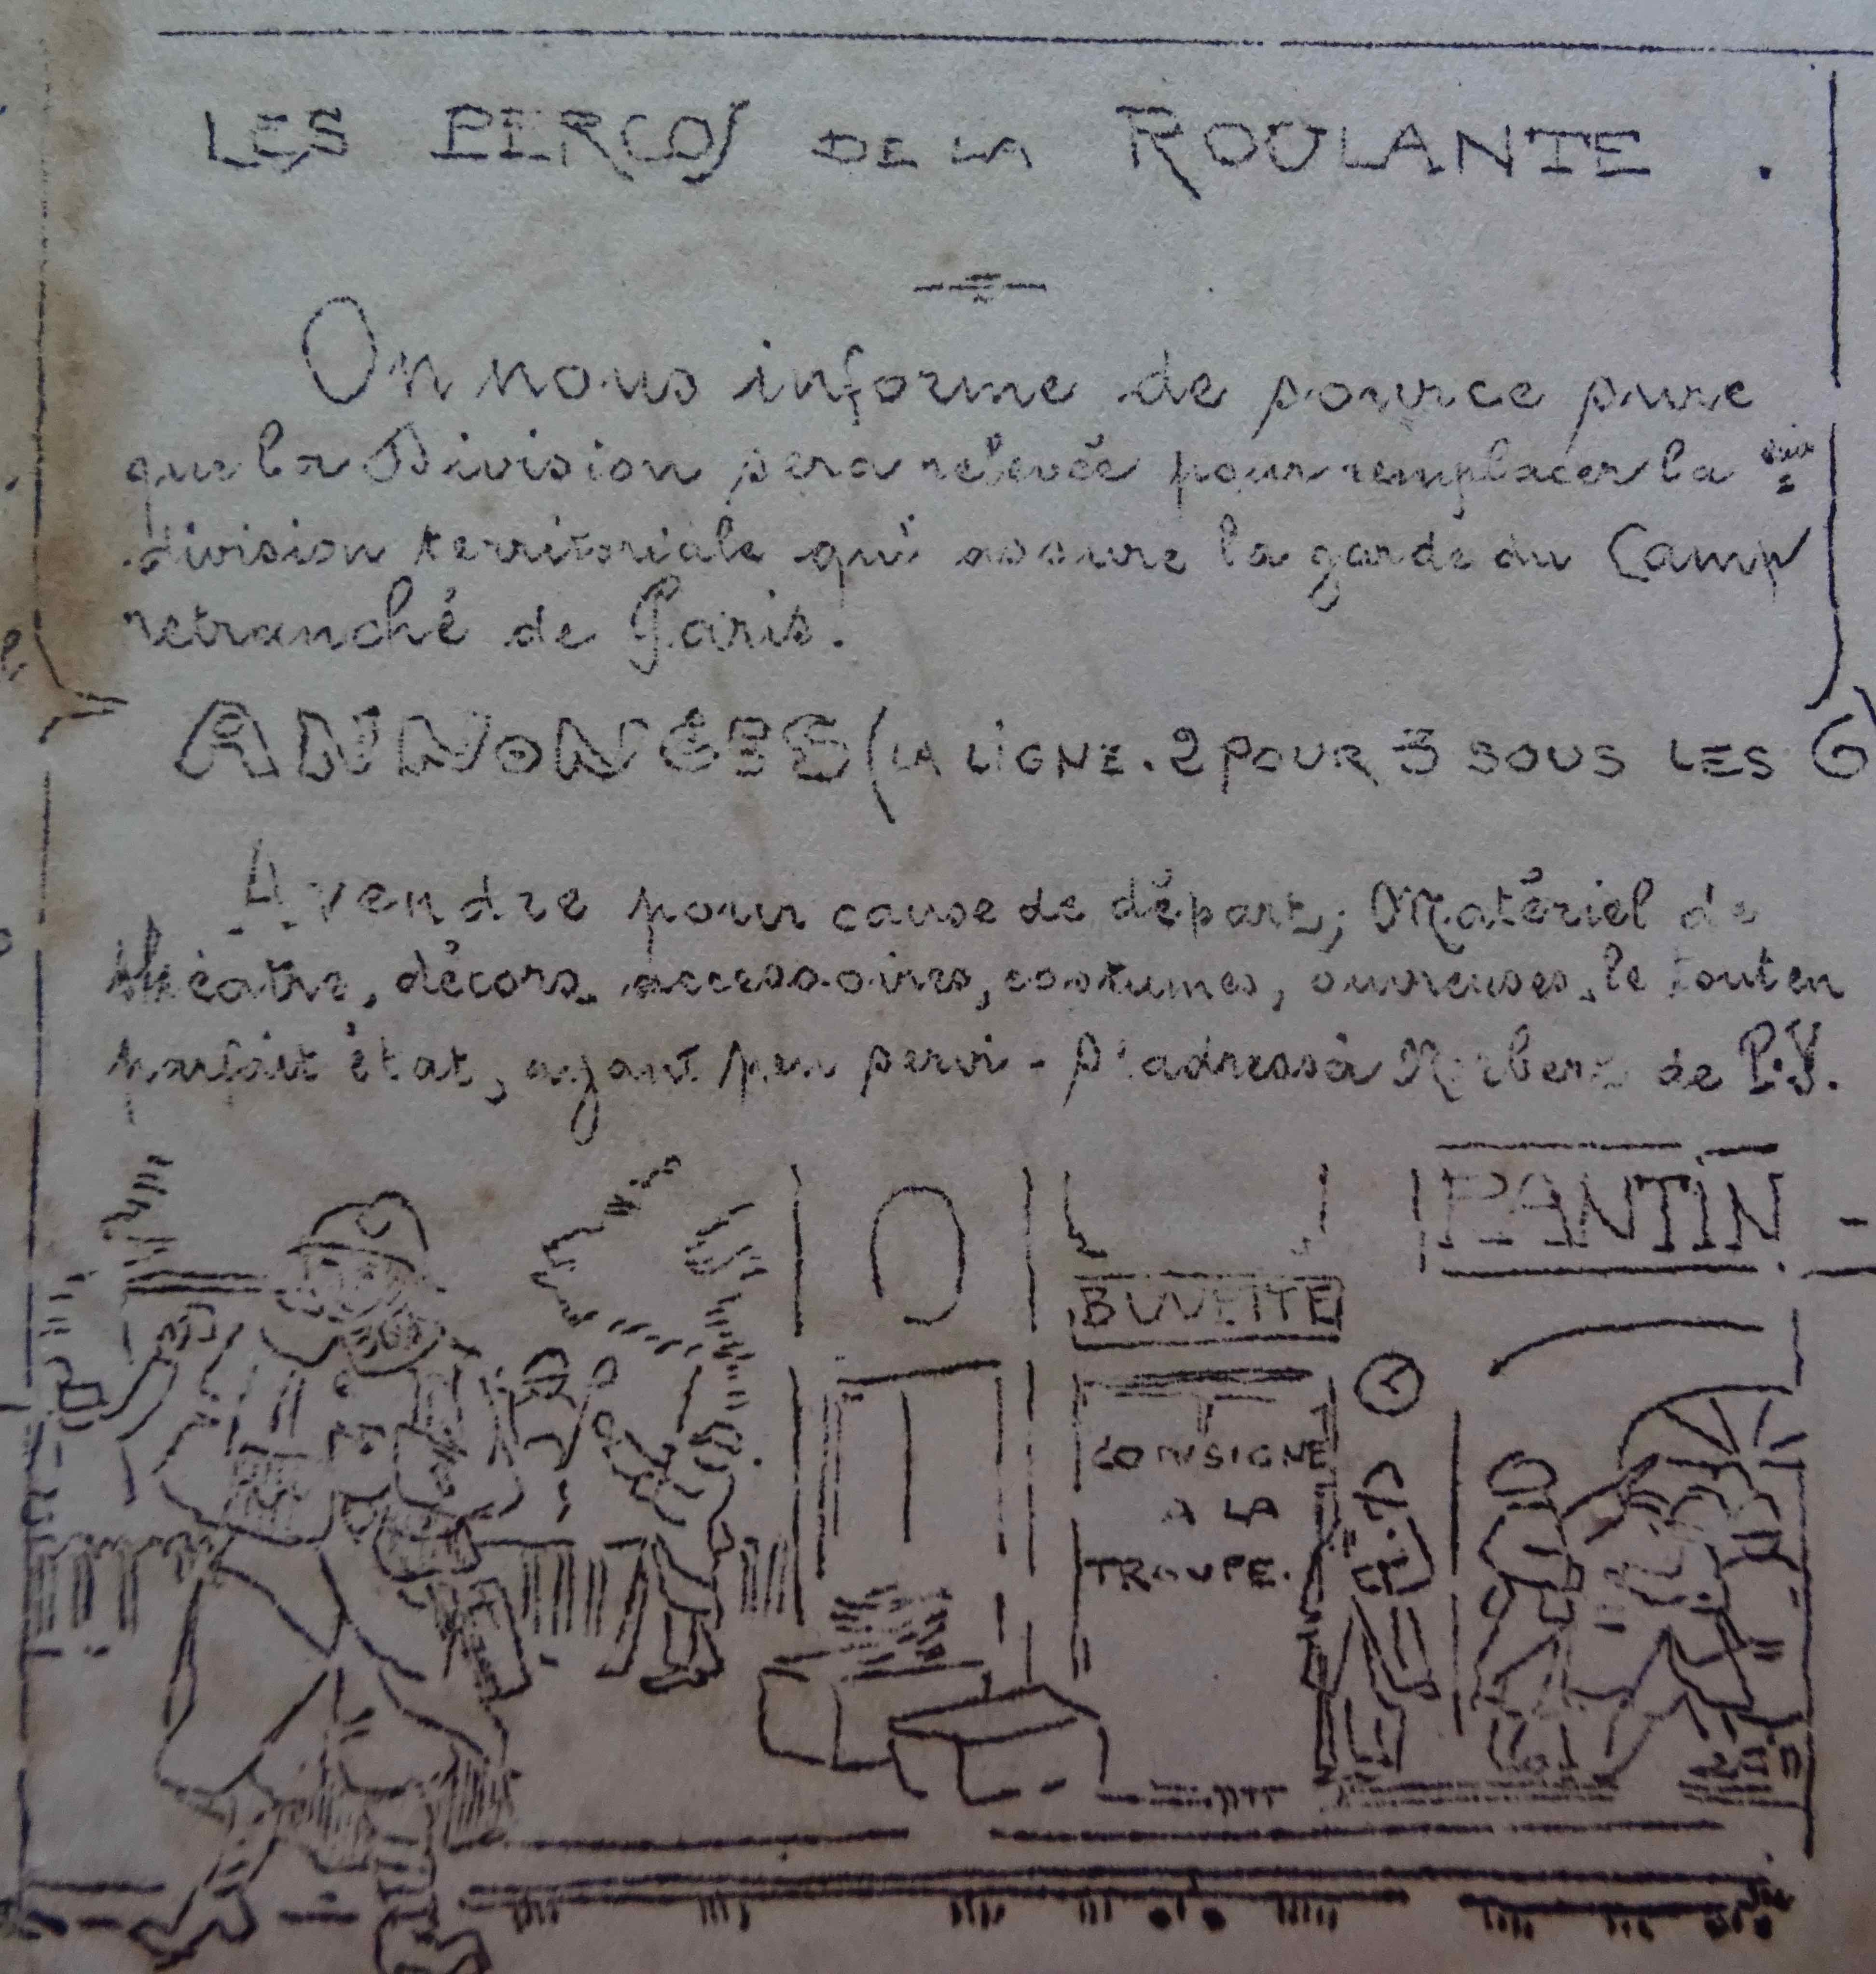 LES PERCOS DE LA ROULANTE.
On nous informe de source pure
que la Division sera relevée pour remplacer la
division territoriale qui assure la garde du Camp
retranché de Paris.
ANNONCES (LA LIGNE. 2 POUR 3 SOUS LES 6)
A vendre pour cause de départ, Matériel de
théatre, décors, accessoires, costumes, ouvreuses, le tout en
parfait état, ayant peu servi - s'adresser à de P.Y.
PANTIN -
BUVETTE
CONSIGNE
A LA
TROUPE.